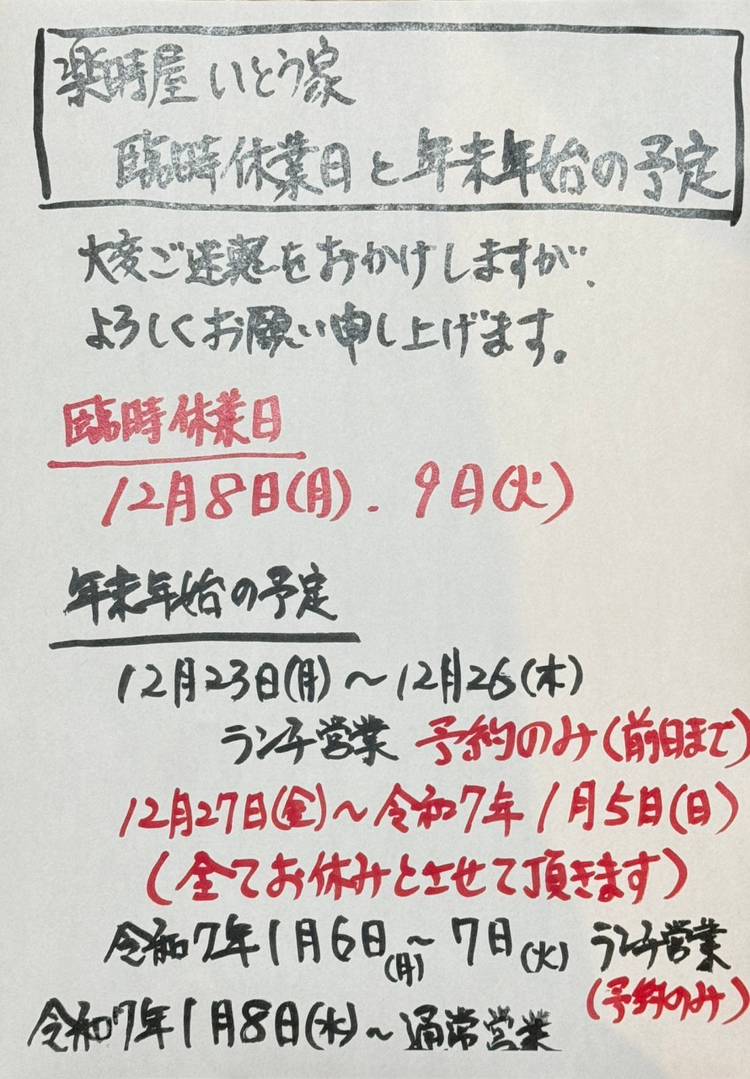 楽時屋 いとう家
臨時休業日と年末年始の予定
大変ご迷惑をおかけしますが、
よろしくお願い申し上げます。
臨時休業日
12月8日(月). 9日(火)
年末年始の予定
12月23日(月)～12月26(木)
ランチ営業 予約のみ(前日まで)
12月27日(金)～令和7年1月5日(日)
(全てお休みとさせて頂きます)
令和7年1月6日(月)～7日(火) ランチ営業
(予約のみ)
令和7年1月8日(水)～通常営業